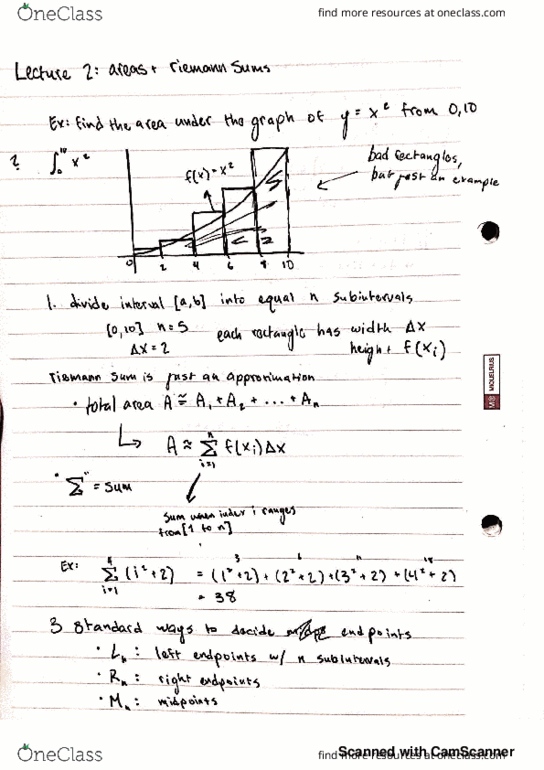 OneClass find more resources at oneclass.com
Lecture 2: areas + riemann sums
Ex: find the area under the graph of y = x² from 0,10
? ∫₀¹⁰ x²
f(x) = x²
bad rectangles,
but just an example
0 2 4 6 8 10
1. divide interval [a,b] into equal n subintervals
[0,10] n=5 each rectangle has width Δx
Δx = 2 height f(xᵢ)
riemann sum is just an approximation
• total area A ≈ A₁ + A₂ + ... + Aₙ
A ≈ ∑ᵢ₌₁ⁿ f(xᵢ)Δx
• "∑" = sum
sum when index i ranges
from [1 to n]
3 6 11 18
Ex: ∑ᵢ₌₁⁴ (i²+2) = (1²+2) + (2²+2) + (3²+2) + (4²+2)
= 38
3 standard ways to decide endpoints
• Lₙ : left endpoints w/ n subintervals
• Rₙ : right endpoints
• Mₙ : midpoints
MIQUELRIUS
Scanned with CamScanner
OneClass find more resources at oneclass.com